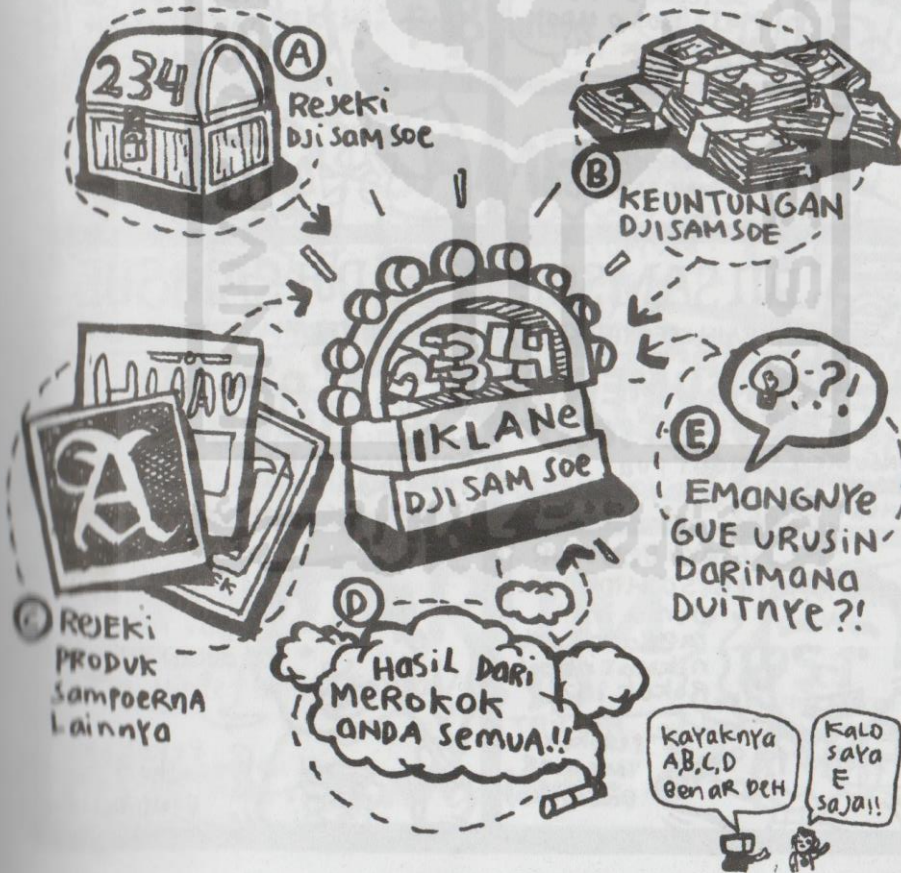 234
A
Rejeki
DJI SAM SOE
B
KEUNTUNGAN
DJISAMSOE
234
IKLANe
DJI SAM SOE
A
C
REJEKi
PRODUK
SAMPOERNA
Lainnya
D
HASiL DARi
MEROKOK
ANDA SEMUA!!
?!
E
EMANGNYe
GUE URUSiN
DARiMANA
DUiTNYe?!
Kayaknya
A,B,C,D
BenaR DeH
KaLO
saya
E
saja!!